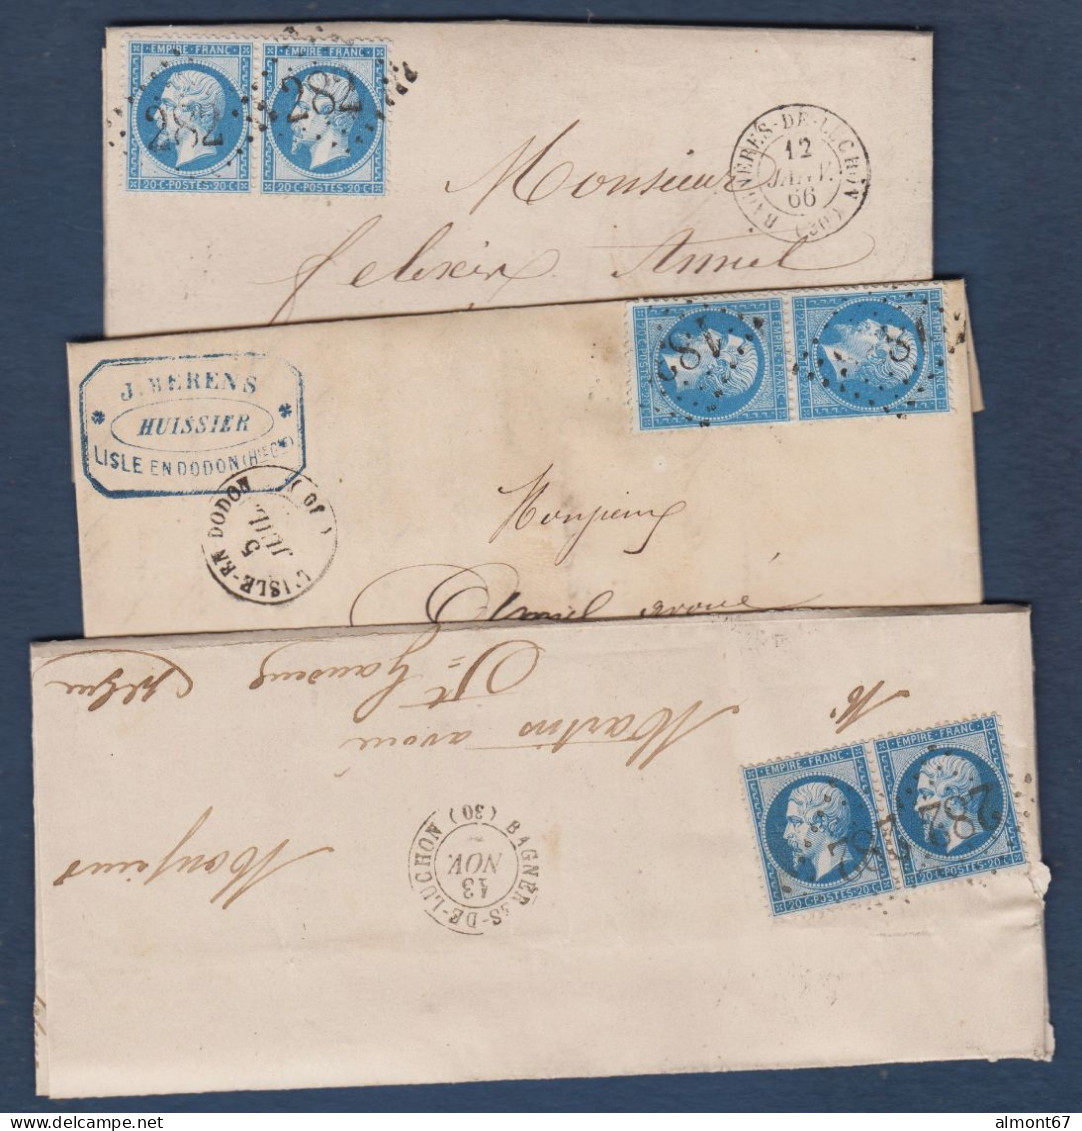 EMPIRE FRANC EMPIRE FRANC
282 282
20 C POSTES 20 C 20 C POSTES 20 C
BAGNERES-DE-LUCHON (30)
12
JANV.
66
Monsieur
J. BERENS
HUISSIER
LISLE EN DODON (Hte GNE)
L'ISLE-EN DODON (30)
5
JUIL.
Monsieur
Amiel avoué
Monsieur
Mr
Martin avoué
St Gaudens
BAGNÈRES-DE-LUCHON (30)
13
NOV.
EMPIRE FRANC EMPIRE FRANC
282 282
20 C POSTES 20 C 20 C POSTES 20 C
almont67